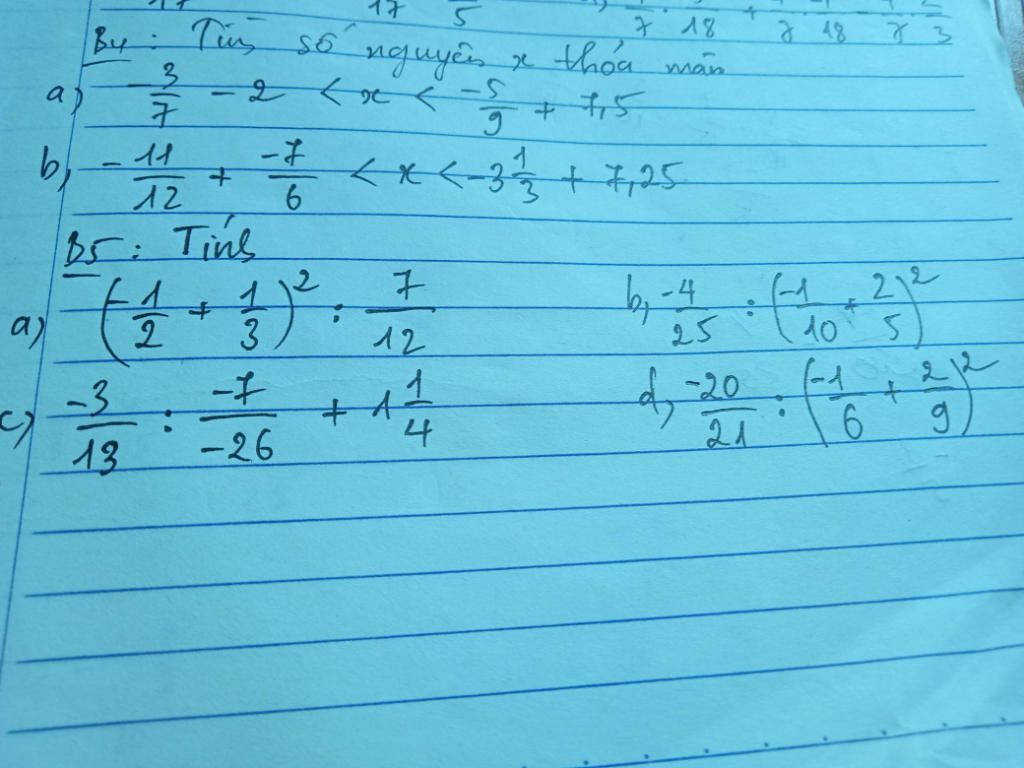 17 17 5 7 18 + 7 18 7 3
B4 : Tìm số nguyên x thỏa mãn
a) -3/7 - 2 < x < -5/9 + 7,5
b, -11/12 + -7/6 < x < -3 1/3 + 7,25
B5 : Tính
a) (-1/2 + 1/3)² : 7/12 b, -4/25 : (-1/10 + 2/5)²
c) -3/13 : -7/-26 + 1 1/4 d, -20/21 : (-1/6 + 2/9)²